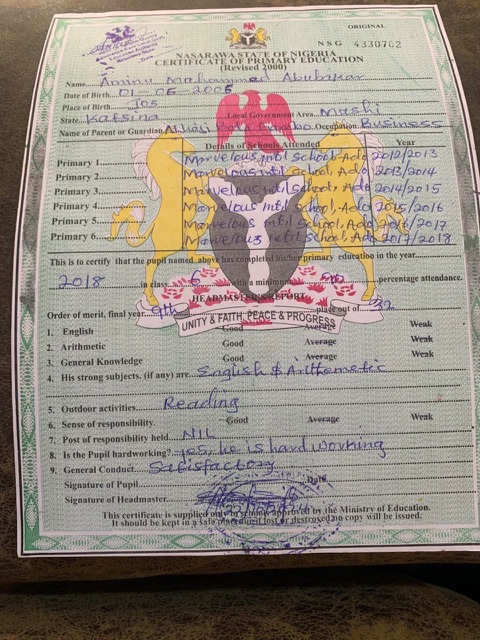 ORIGINAL
NSG 4330702
NASARAWA STATE OF NIGERIA
CERTIFICATE OF PRIMARY EDUCATION
(Revised 2000)
Name Aminu Mohammed Abubakar
Date of Birth 01-06-2006
Place of Birth Jos
State Katsina Local Government Area Mashi
Name of Parent or Guardian Alhaji Bala Gambo Occupation Business
Details of Schools Attended Year
Primary 1 Marvelous Int'l School, Ado 2012/2013
Primary 2 Marvelous Int'l School, Ado 2013/2014
Primary 3 Marvelous Int'l School, Ado 2014/2015
Primary 4 Marvelous Int'l School, Ado 2015/2016
Primary 5 Marvelous Int'l School, Ado 2016/2017
Primary 6 Marvelous Int'l School, Ado 2017/2018
This is to certify that the pupil named above has completed his/her primary education in the year
2018 in class 6 with a minimum percentage attendance.
HEADMASTER'S REPORT
Order of merit, final year 9th place out of 32
UNITY & FAITH, PEACE & PROGRESS
1. English Good Average Weak
2. Arithmetic Good Average Weak
3. General Knowledge Good Average Weak
4. His strong subjects. (if any) are English & Arithmetic
5. Outdoor activities Reading
6. Sense of responsibility Good Average Weak
7. Post of responsibility held NIL
8. Is the Pupil hardworking? yes, he is hardworking
9. General Conduct Satisfactory
Signature of Pupil Date
Signature of Headmaster
This certificate is supplied only to schools approved by the Ministry of Education.
It should be kept in a safe place and if lost or destroyed no copy will be issued.